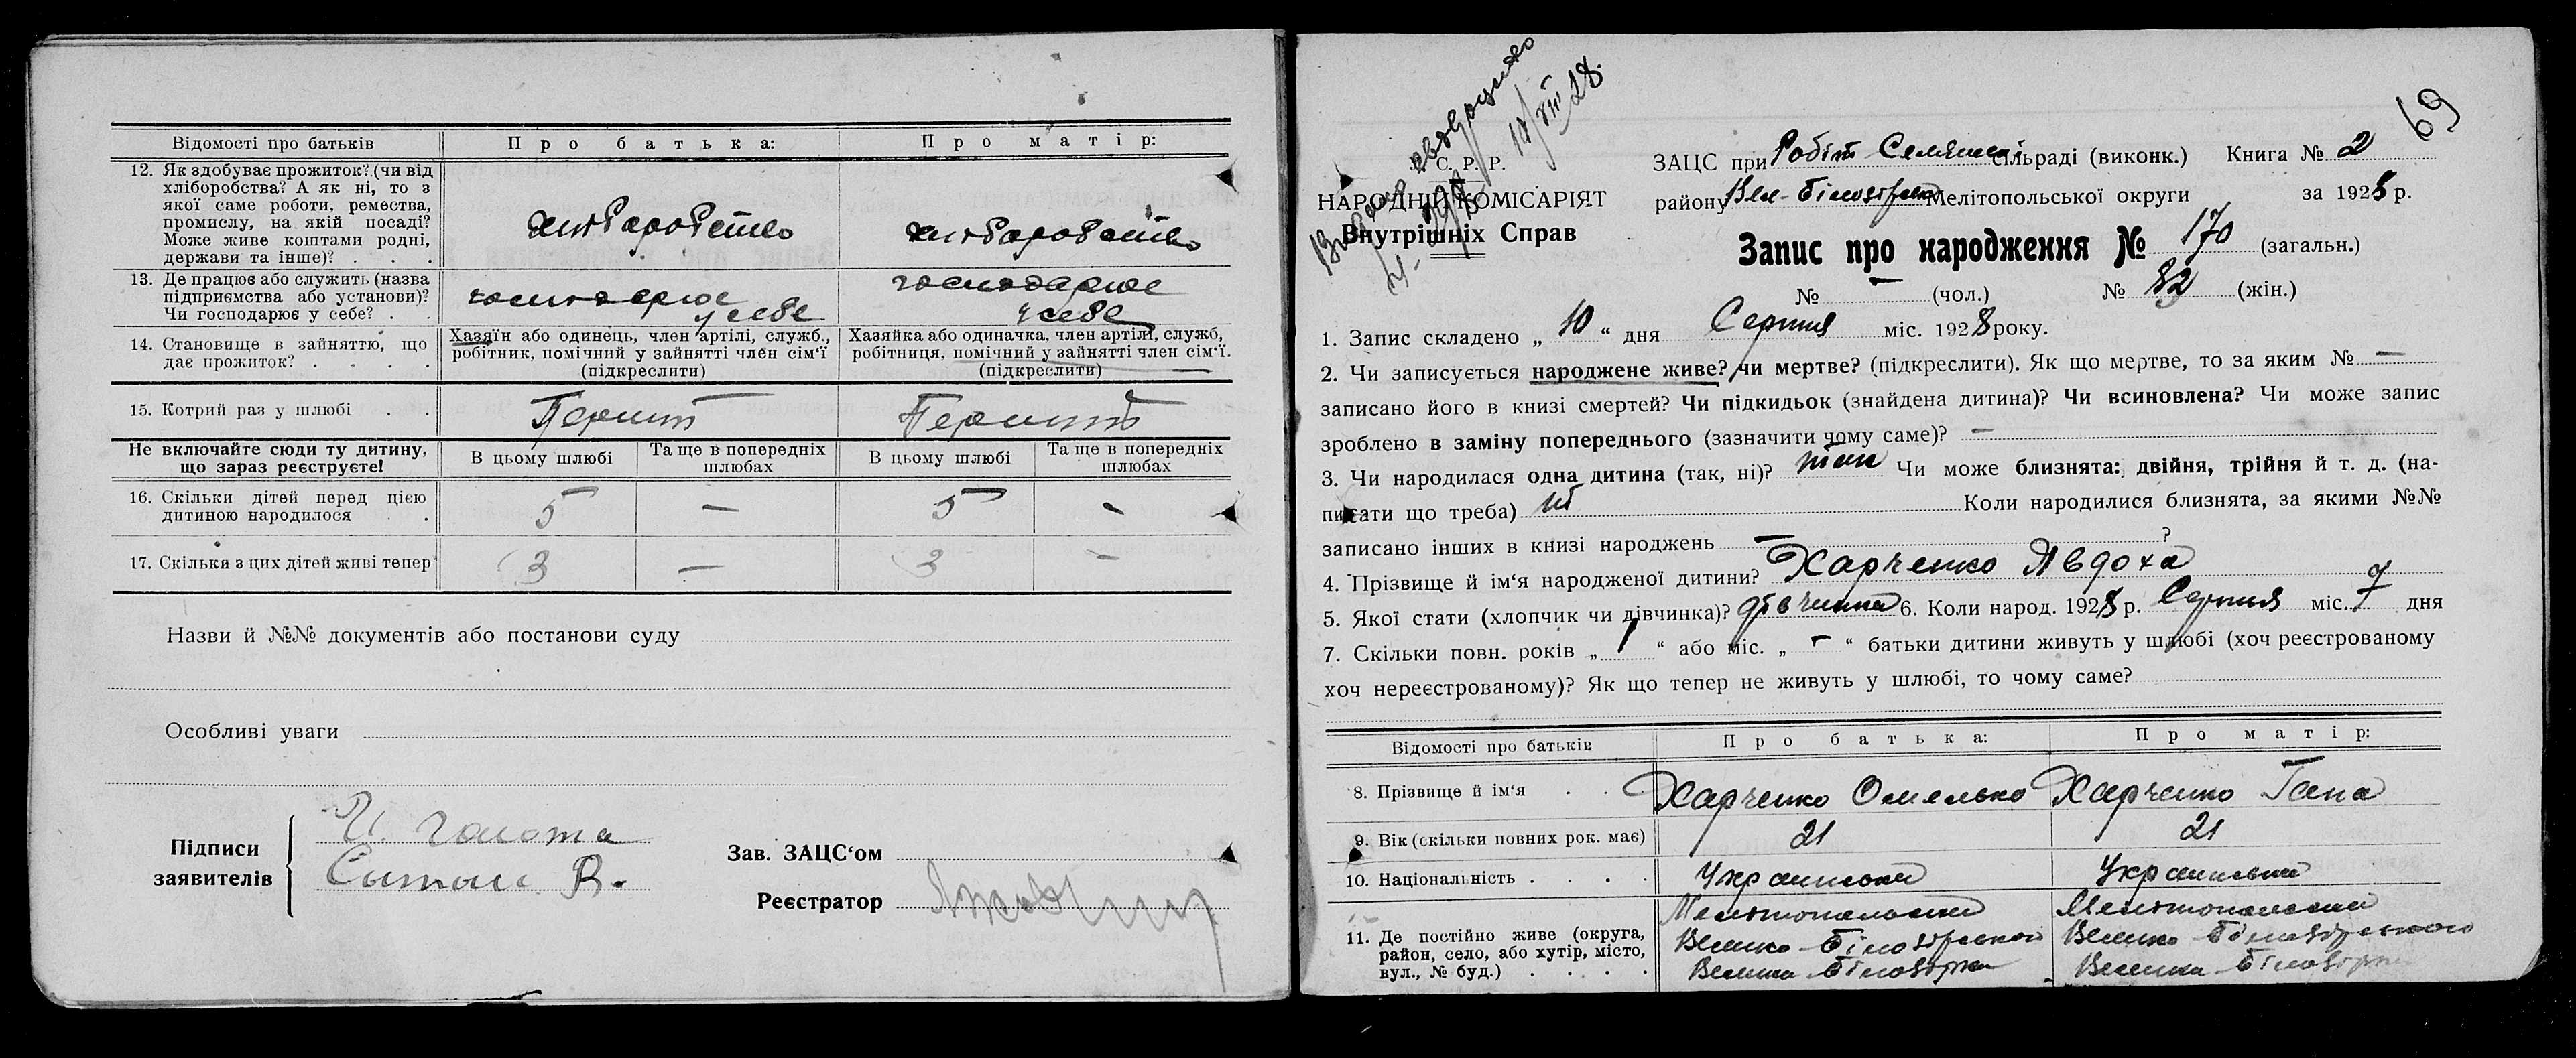 Відомості про батьків
Про батька:
Про матір:
12. Як здобуває прожиток? (чи від
хліборобства? А як ні, то з
якої саме роботи, ремества,
промислу, на якій посаді?
Може живе коштами родні,
держави та інше)? . . .
хліборобство
хліборобство
13. Де працює або служить (назва
підприємства або установи)?
Чи господарює у себе? . .
господарює
у себе
господарює
у себе
14. Становище в зайняттю, що
дає прожиток? . . . .
Хазяїн або одинець, член артілі, служб.,
робітник, помічний у зайнятті член сім'ї
(підкреслити)
Хазяйка або одиначка, член артілі, служб,
робітниця, помічний у зайнятті член сім'ї.
(підкреслити)
15. Котрий раз у шлюбі . .
Перший
Перший
Не включайте сюди ту дитину,
що зараз реєструєте!
В цьому шлюбі
Та ще в попередніх
шлюбах
В цьому шлюбі
Та ще в попередніх
шлюбах
16. Скільки дітей перед цією
дитиною народилося . .
5 — 5 -
17. Скільки з цих дітей живі тепер
3 — 3 -
Назви й №№ документів або постанови суду
Особливі уваги
Підписи
заявителів
Зав. ЗАЦС'ом
Реєстратор
69
14/VIII 28.
С. Р. Р.
НАРОДНІЙ КОМІСАРІЯТ
Внутрішніх Справ
ЗАЦС при Робіт Селянські сільраді (виконк.) Книга № 2
району Вел-Білозірськ Мелітопольської округи за 1928 р.
Запис про народження № 170 (загальн.)
№ — (чол.) № 82 (жін.)
1. Запис складено „ 10 “ дня Серпня міс. 1928 року.
2. Чи записується народжене живе? чи мертве? (підкреслити). Як що мертве, то за яким № —
записано його в книзі смертей? Чи підкидьок (знайдена дитина)? Чи всиновлена? Чи може запис
зроблено в заміну попереднього (зазначити чому саме)? —
3. Чи народилася одна дитина (так, ні)? так Чи може близнята: двійня, трійня й т. д. (на-
писати що треба) ні Коли народилися близнята, за якими №№
записано інших в книзі народжень — ?
4. Прізвище й ім'я народженої дитини? Харченко Явдоха
5. Якої статі (хлопчик чи дівчинка)? дівчинка 6. Коли народ. 1928 р. Серпня міс. дня
7. Скільки повн. років „ 1 “ або міс. „ - “ батьки дитини живуть у шлюбі (хоч реєстрованому
хоч нереєстрованому)? Як що тепер не живуть у шлюбі, то чому саме?
Відомості про батьків
Про батька:
Про матір:
8. Прізвище й ім'я . .
Харченко Омелько
Харченко Гана
9. Вік (скільки повних рок. має)
21
21
10. Національність . . . .
Українськи
Українськи
11. Де постійно живе (округа,
район, село, або хутір, місто,
вул., № буд.) . . . .
Мелітопольськи
Велико-Білозірського
Велика Білозірка
Мелітопольськи
Велико-Білозірського
Велика-Білозірка